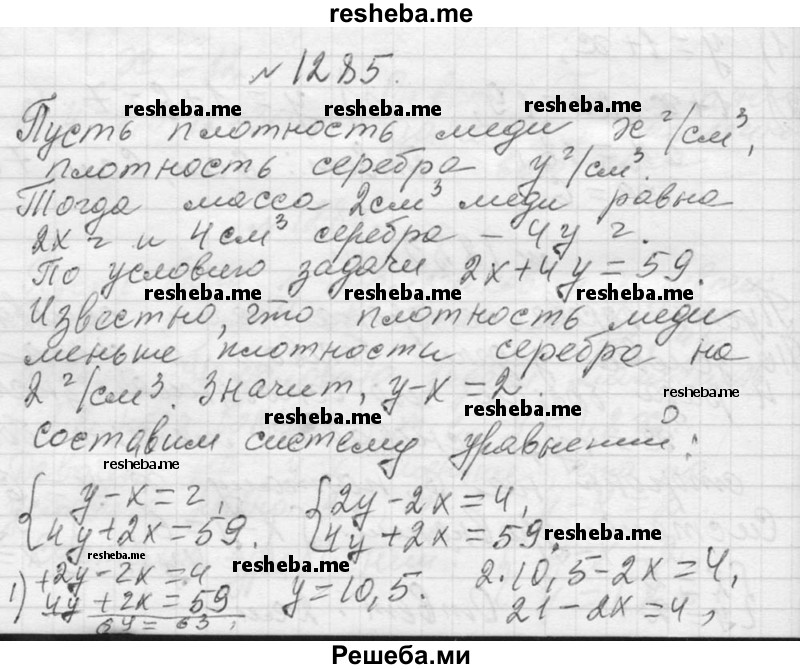 resheba.me
№1285.
Пусть плотность меди x г/см³,
плотность серебра y г/см³.
Тогда масса 2см³ меди равна
2x г и 4см³ серебра – 4y г.
По условию задачи 2x+4y=59.
Известно, что плотность меди
меньше плотности серебра на
2 г/см³. Значит, y-x=2.
составим систему уравнений:
y-x=2, 2y-2x=4,
4y+2x=59. 4y+2x=59.
1) +2y-2x=4 y=10,5. 2·10,5-2x=4,
4y+2x=59 21-2x=4,
6y=63,
resheba.me
resheba.me
resheba.me
resheba.me
resheba.me
resheba.me
resheba.me
resheba.me
resheba.me
resheba.me
resheba.me
resheba.me
resheba.me
Решеба.ми